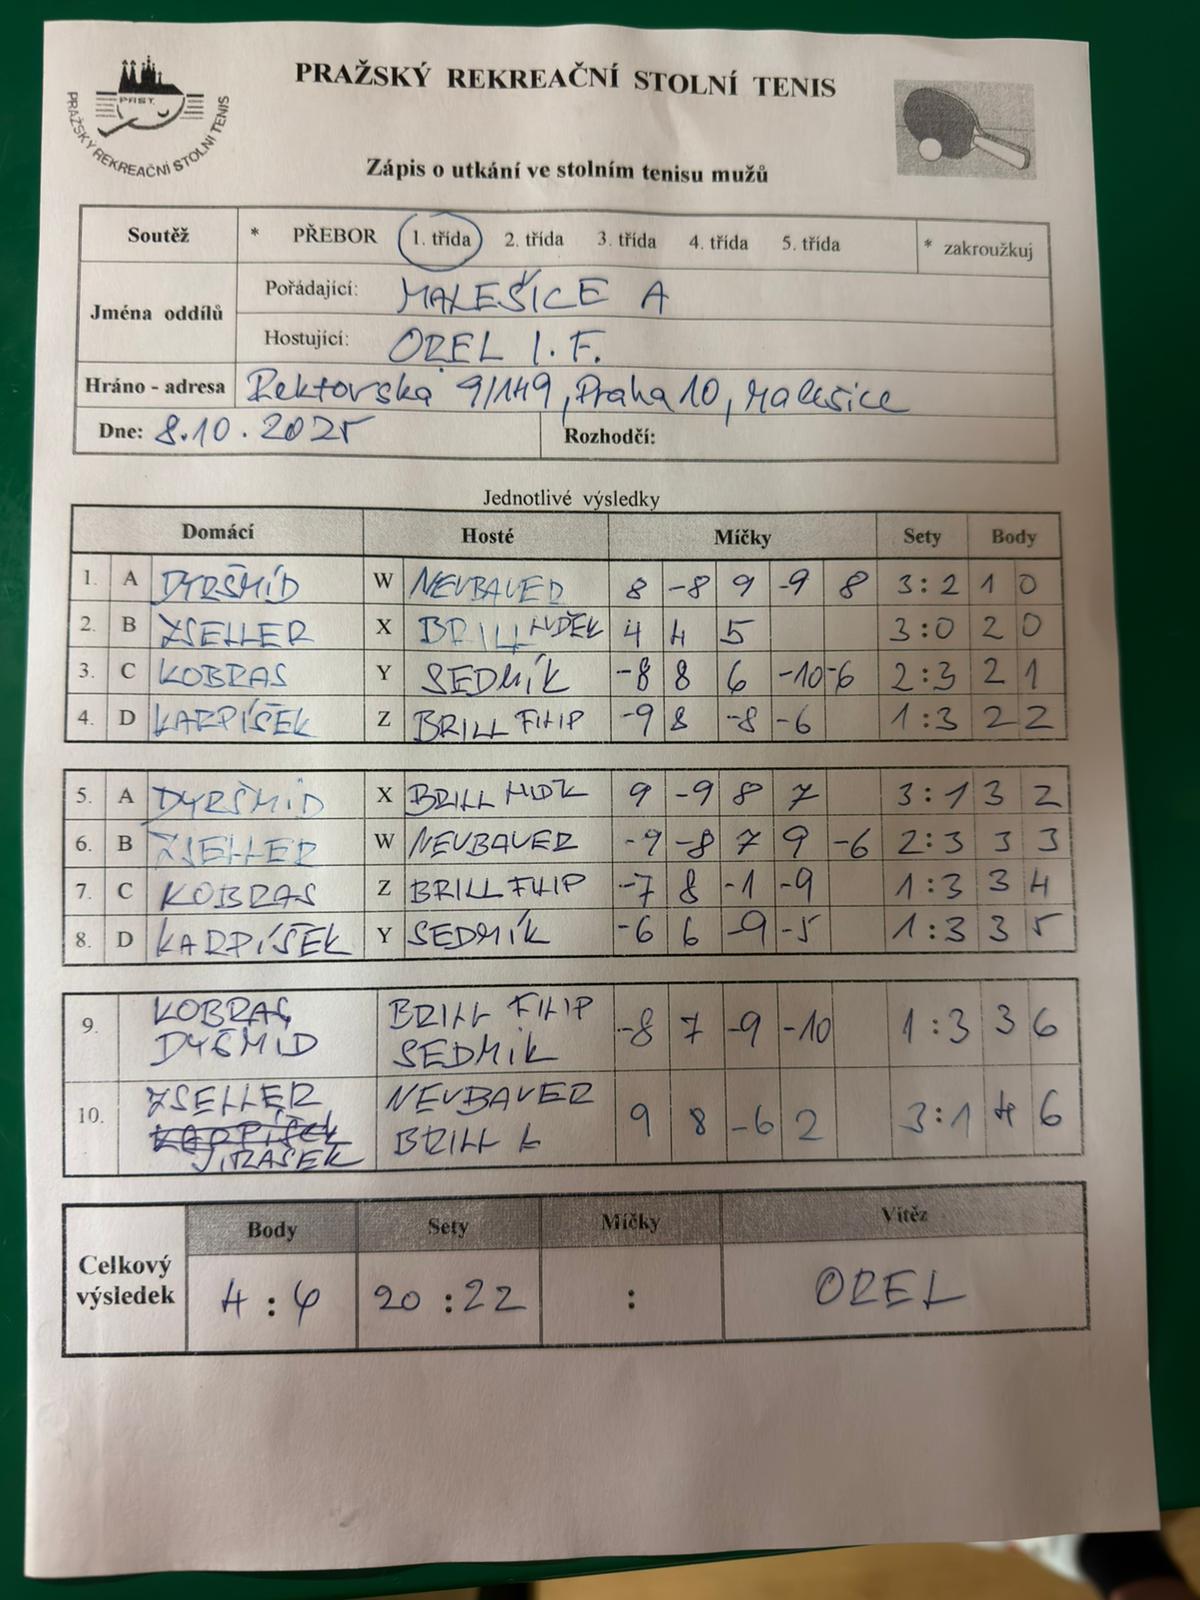 PRAŽSKÝ REKREAČNÍ STOLNÍ TENIS
PRST.
PRAŽSKÝ REKREAČNÍ STOLNÍ TENIS
Zápis o utkání ve stolním tenisu mužů
Soutěž * PŘEBOR 1. třída 2. třída 3. třída 4. třída 5. třída * zakroužkuj
Jména oddílů
Pořádající: MALEŠICE A
Hostující: OREL I. F.
Hráno - adresa Rektorská 9/149, Praha 10, Malešice
Dne: 8.10.2025 Rozhodčí:
Jednotlivé výsledky
Domácí Hosté Míčky Sety Body
1. A DYRŠMÍD W NEUBAUER 8 -8 9 -9 8 3:2 1 0
2. B ZSELLER X BRILL LUDĚK 4 4 5 3:0 2 0
3. C KOBRAS Y SEDMÍK -8 8 6 -10 -6 2:3 2 1
4. D KARPÍŠEK Z BRILL FILIP -9 8 -8 -6 1:3 2 2
5. A DYRŠMÍD X BRILL 9 -9 8 7 3:1 3 2
6. B ZSELLER W NEUBAUER -9 -8 7 9 -6 2:3 3 3
7. C KOBRAS Z BRILL FILIP -7 8 -1 -9 1:3 3 4
8. D KARPÍŠEK Y SEDMÍK -6 6 -9 -5 1:3 3 5
9. KOBRAS BRILL FILIP -8 7 -9 -10 1:3 3 6
DYŠMÍD SEDMÍK
10. ZSELLER NEUBAUER 9 8 -6 2 3:1 4 6
KARPÍŠEK BRILL L
JIRASEK
Celkový výsledek
Body Sety Míčky Vítěz
4:6 20:22 : OREL